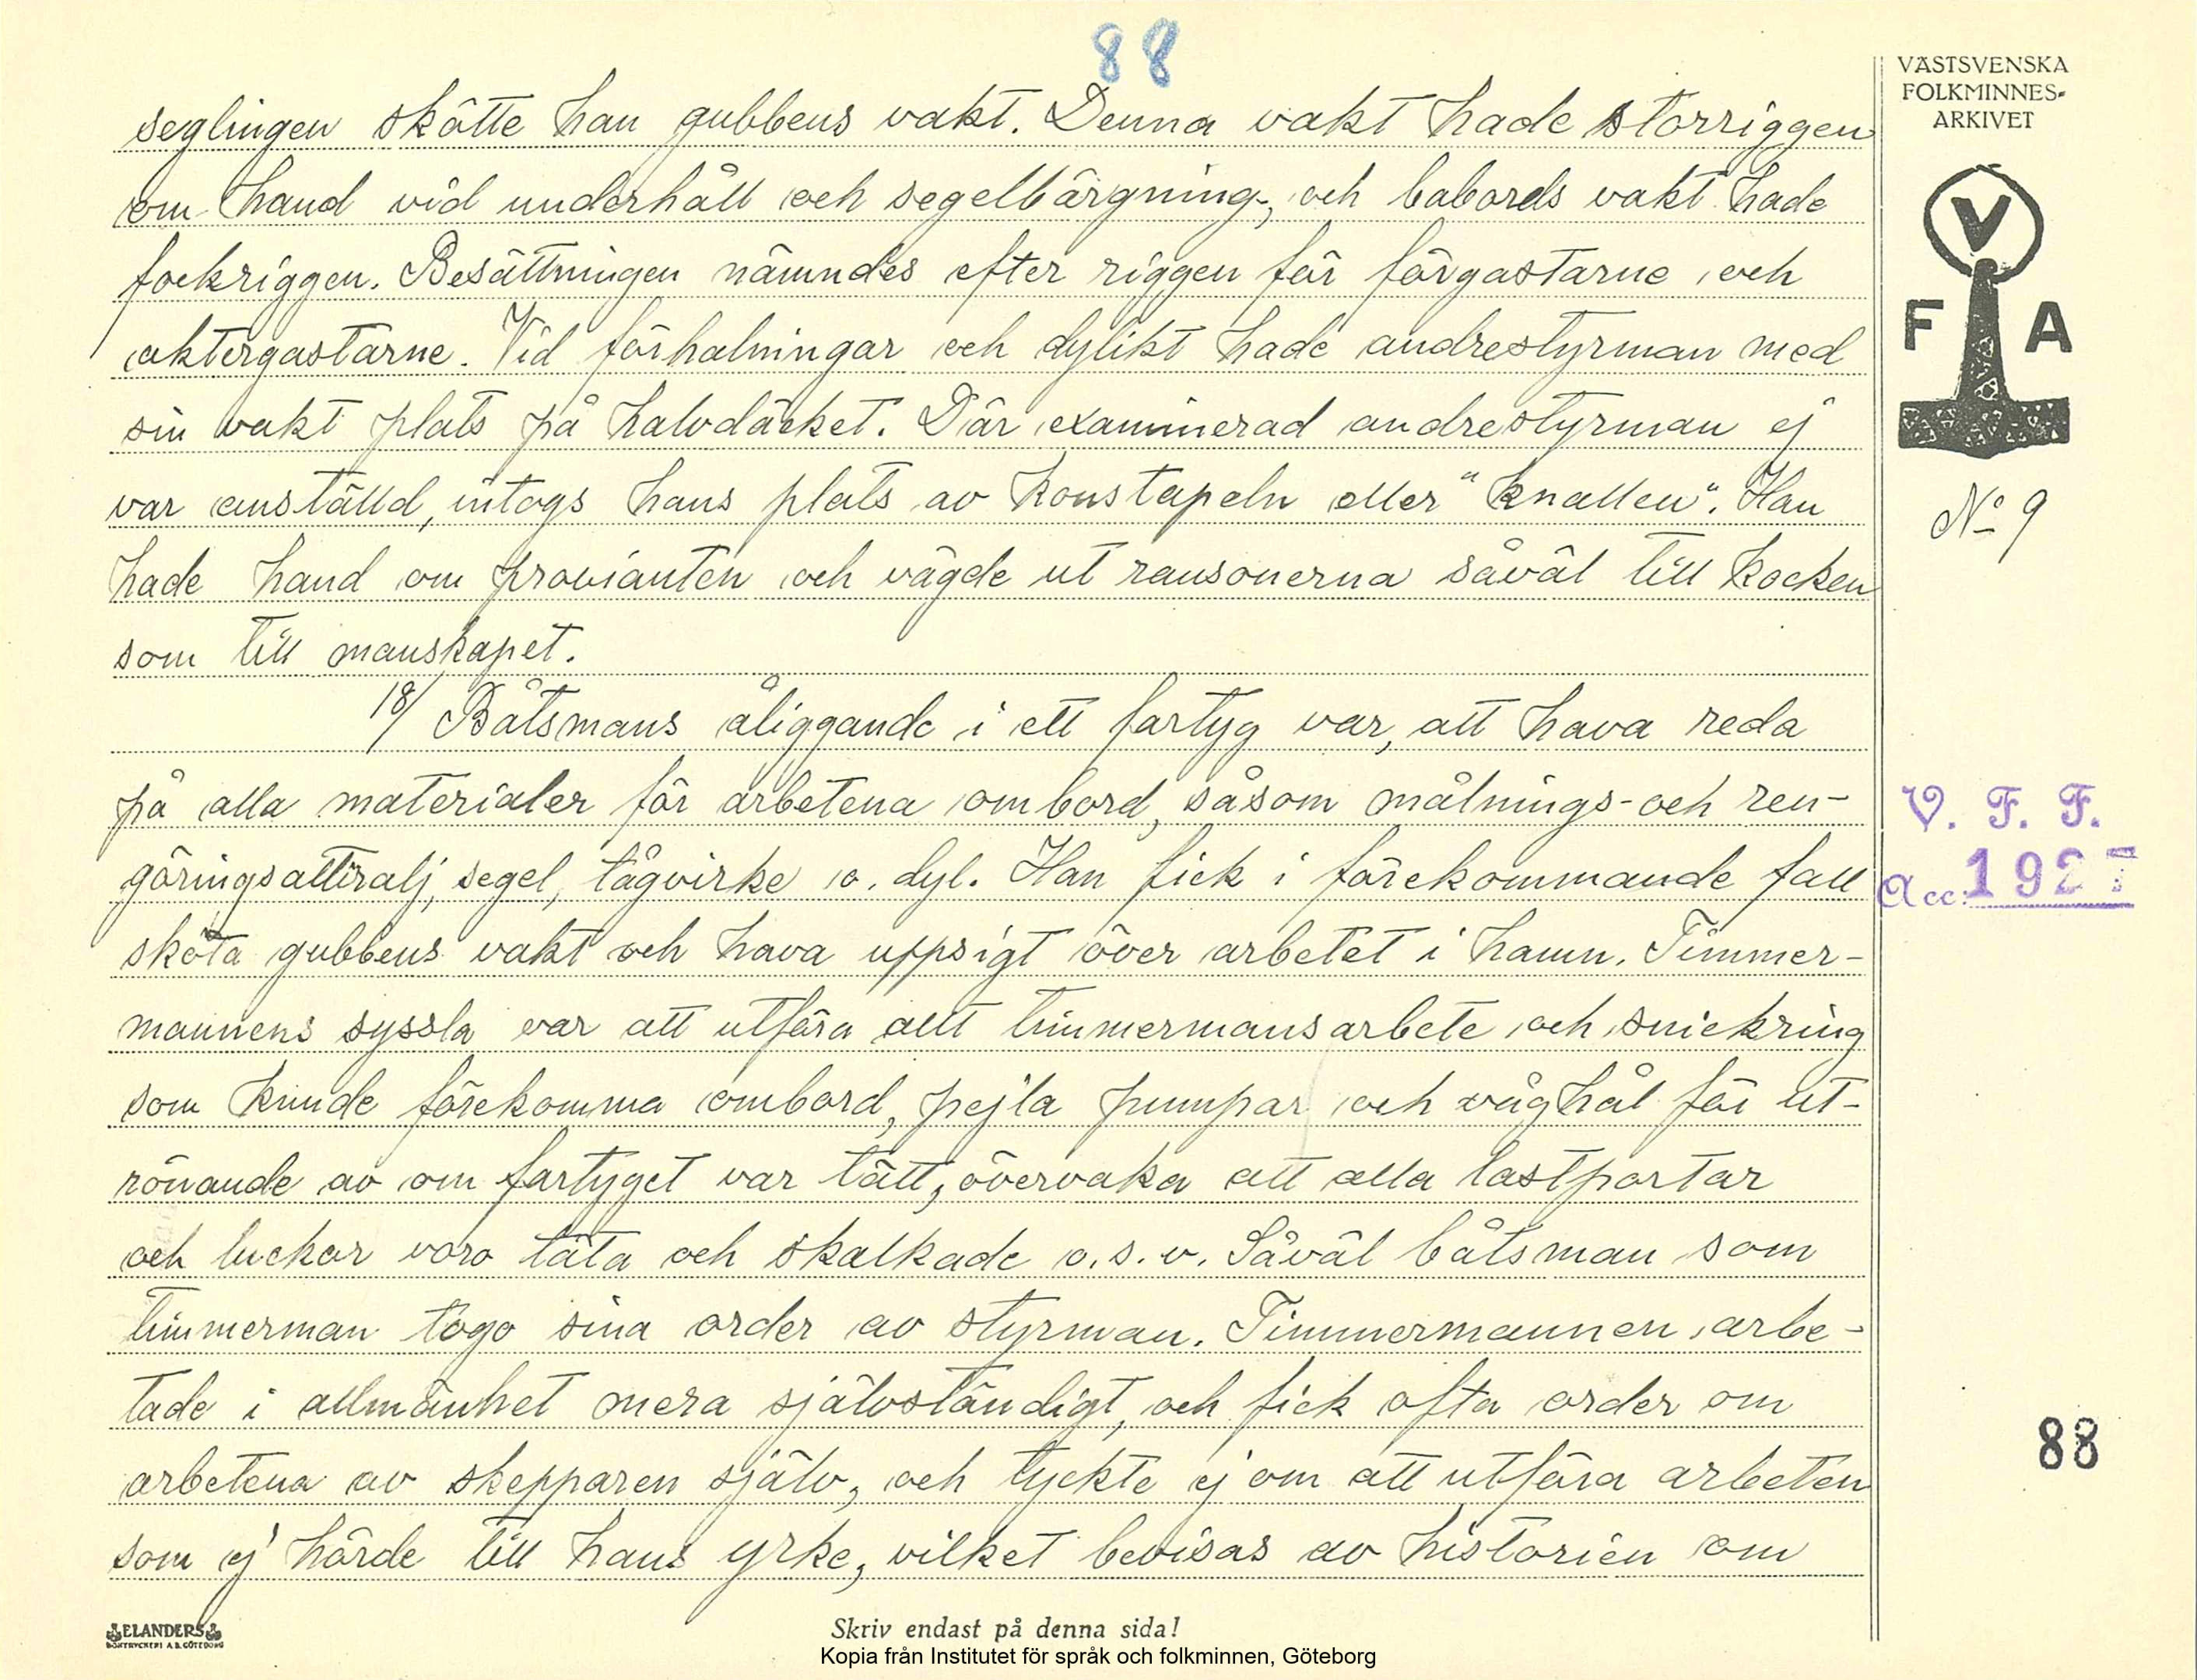 88
seglingen skötte han gubbens vakt. Denna vakt hade storriggen
om hand vid underhåll och segelbärgning, och babords vakt hade
fockriggen. Besättningen nämndes efter riggen för förgastarne och
aktergastarne. Vid förhalningar och dylikt hade andrestyrman med
sin vakt plats på halvdäcket. Där examinerad andrestyrman ej
var anställd, intogs hans plats av konstapeln eller "knallen". Han
hade hand om provianten och vägde ut ransonerna såväl till kocken
som till manskapet.
18/ Båtsmans åliggande i ett fartyg var, att hava reda
på alla materialer för arbetena ombord, såsom målnings- och ren-
göringsattiralj, segel, tågvirke o. dyl. Han fick i förekommande fall
sköta gubbens vakt och hava uppsigt över arbetet i hamn. Timmer-
mannens syssla var att utföra allt timmermansarbete och snickring
som kunde förekomma ombord, pejla pumpar och våghål för ut-
rönande av om fartyget var tätt, övervaka att alla lastportar
och luckor voro täta och skalkade o.s.v. Såväl båtsman som
timmerman togo sina order av styrman. Timmermannen arbe-
tade i allmänhet mera självständigt, och fick ofta order om
arbetena av skepparen själv, och tyckte ej om att utföra arbeten
som ej hörde till hans yrke, vilket bevisas av historien om
VÄSTSVENSKA
FOLKMINNES-
ARKIVET
V
F A
No 9
V. F. F.
Acc. 1927
88
ELANDERS
BOKTRYCKERI A.B. GÖTEBORG
Skriv endast på denna sida!
Kopia från Institutet för språk och folkminnen, Göteborg